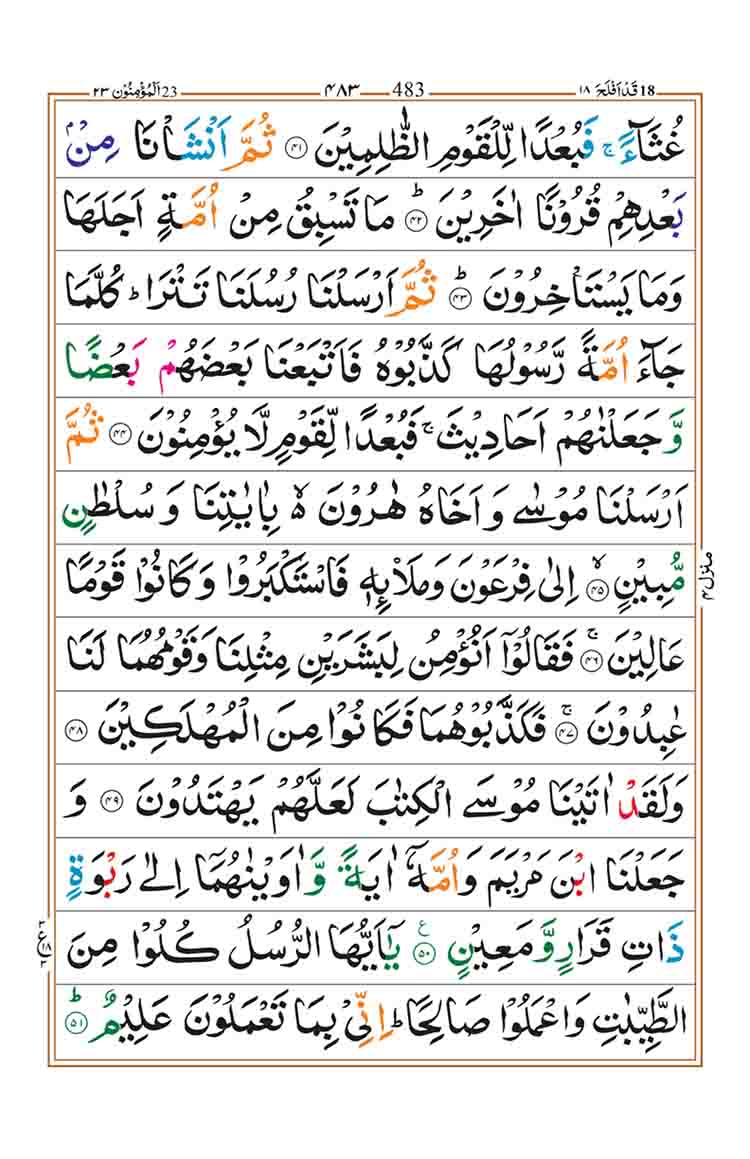 18 قَدْ اَفْلَحَ ١٨ 483 ٤٨٣ 23 اَلْمُؤْمِنُوْن ٢٣
غُثَآءً ۚ فَبُعْدًا لِّلْقَوْمِ الظّٰلِمِيْنَ ﴿٤١﴾ ثُمَّ اَنْشَاْنَا مِنْۢ
بَعْدِهِمْ قُرُوْنًا اٰخَرِيْنَ ؕ ﴿٤٢﴾ مَا تَسْبِقُ مِنْ اُمَّةٍ اَجَلَهَا
وَمَا يَسْتَاْخِرُوْنَ ؕ ﴿٤٣﴾ ثُمَّ اَرْسَلْنَا رُسُلَنَا تَتْرَا ؕ كُلَّمَا
جَآءَ اُمَّةً رَّسُوْلُهَا كَذَّبُوْهُ فَاَتْبَعْنَا بَعْضَهُمْ بَعْضًا
وَّ جَعَلْنٰهُمْ اَحَادِيْثَ ۚ فَبُعْدًا لِّقَوْمٍ لَّا يُؤْمِنُوْنَ ﴿٤٤﴾ ثُمَّ
اَرْسَلْنَا مُوْسٰى وَ اَخَاهُ هٰرُوْنَ ۙ۬ بِاٰيٰتِنَا وَ سُلْطٰنٍ
مُّبِيْنٍ ۙ ﴿٤٥﴾ اِلٰى فِرْعَوْنَ وَمَلَا۟ئِهٖ فَاسْتَكْبَرُوْا وَ كَانُوْا قَوْمًا
عَالِيْنَ ۚ ﴿٤٦﴾ فَقَالُوْۤا اَنُؤْمِنُ لِبَشَرَيْنِ مِثْلِنَا وَقَوْمُهُمَا لَنَا
عٰبِدُوْنَ ۚ ﴿٤٧﴾ فَكَذَّبُوْهُمَا فَكَانُوْا مِنَ الْمُهْلَكِيْنَ ﴿٤٨﴾
وَلَقَدْ اٰتَيْنَا مُوْسَى الْكِتٰبَ لَعَلَّهُمْ يَهْتَدُوْنَ ﴿٤٩﴾ وَ
جَعَلْنَا ابْنَ مَرْيَمَ وَ اُمَّهٗۤ اٰيَةً وَّ اٰوَيْنٰهُمَاۤ اِلٰى رَبْوَةٍ
ذَاتِ قَرَارٍ وَّ مَعِيْنٍ ﴿٥٠﴾ يٰۤاَيُّهَا الرُّسُلُ كُلُوْا مِنَ
الطَّيِّبٰتِ وَاعْمَلُوْا صَالِحًا ؕ اِنِّيْ بِمَا تَعْمَلُوْنَ عَلِيْمٌ ؕ ﴿٥١﴾
منزل ٤
ع